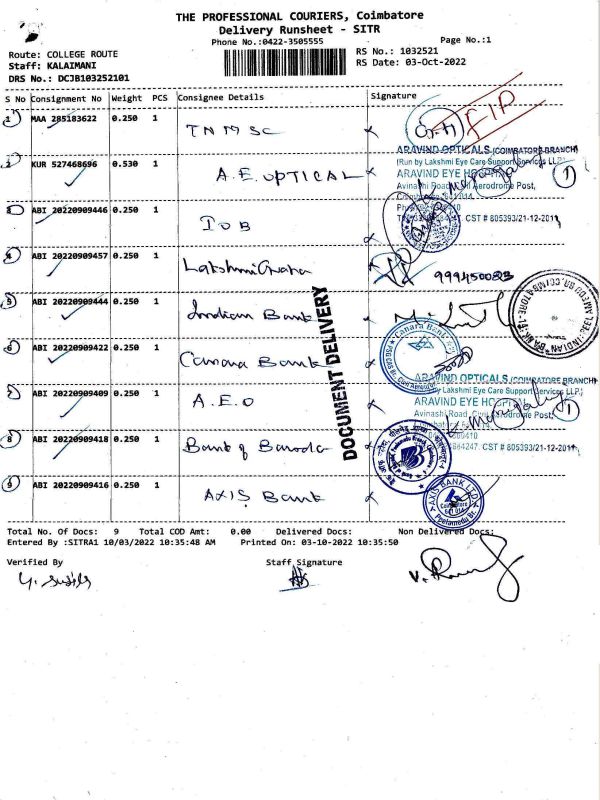 THE PROFESSIONAL COURIERS, Coimbatore
Delivery Runsheet - SITR
Phone No.:0422-3505555
Page No.:1
Route: COLLEGE ROUTE
RS No.: 1032521
Staff: KALAIMANI
RS Date: 03-Oct-2022
DRS No.: DCJB103252101
S No Consignment No Weight PCS Consignee Details Signature
1 MAA 285183622 0.250 1 TNMSC
FIP
ARAVIND OPTICALS (COIMBATORE BRANCH)
2 KUR 527468696 0.530 1 A.E.OPTICAL
(Run by Lakshmi Eye Care Support Services LLP.)
ARAVIND EYE HOSPITAL
Avinashi Road, Civil Aerodrome Post,
1
3 ABI 20220909446 0.250 1 IOB
CST # 805393/21-12-2011
4 ABI 20220909457 0.250 1
5 ABI 20220909444 0.250 1 Indian Bank
6 ABI 20220909422 0.250 1 Canara Bank
Canara Bank
DOCUMENT DELIVERY
ARAVIND OPTICALS (COIMBATORE BRANCH)
7 ABI 20220909409 0.250 1 A.E.O
(Run by Lakshmi Eye Care Support Services LLP.)
ARAVIND EYE HOSPITAL
Avinashi Road, Civil Aerodrome Post,
1
8 ABI 20220909418 0.250 1 Bank of Baroda
CST # 805393/21-12-2011
9 ABI 20220909416 0.250 1 AXIS Bank
AXIS BANK LTD
Total No. Of Docs: 9 Total COD Amt: 0.00 Delivered Docs: Non Delivered Docs:
Entered By :SITRA1 10/03/2022 10:35:48 AM Printed On: 03-10-2022 10:35:50
Verified By Staff Signature